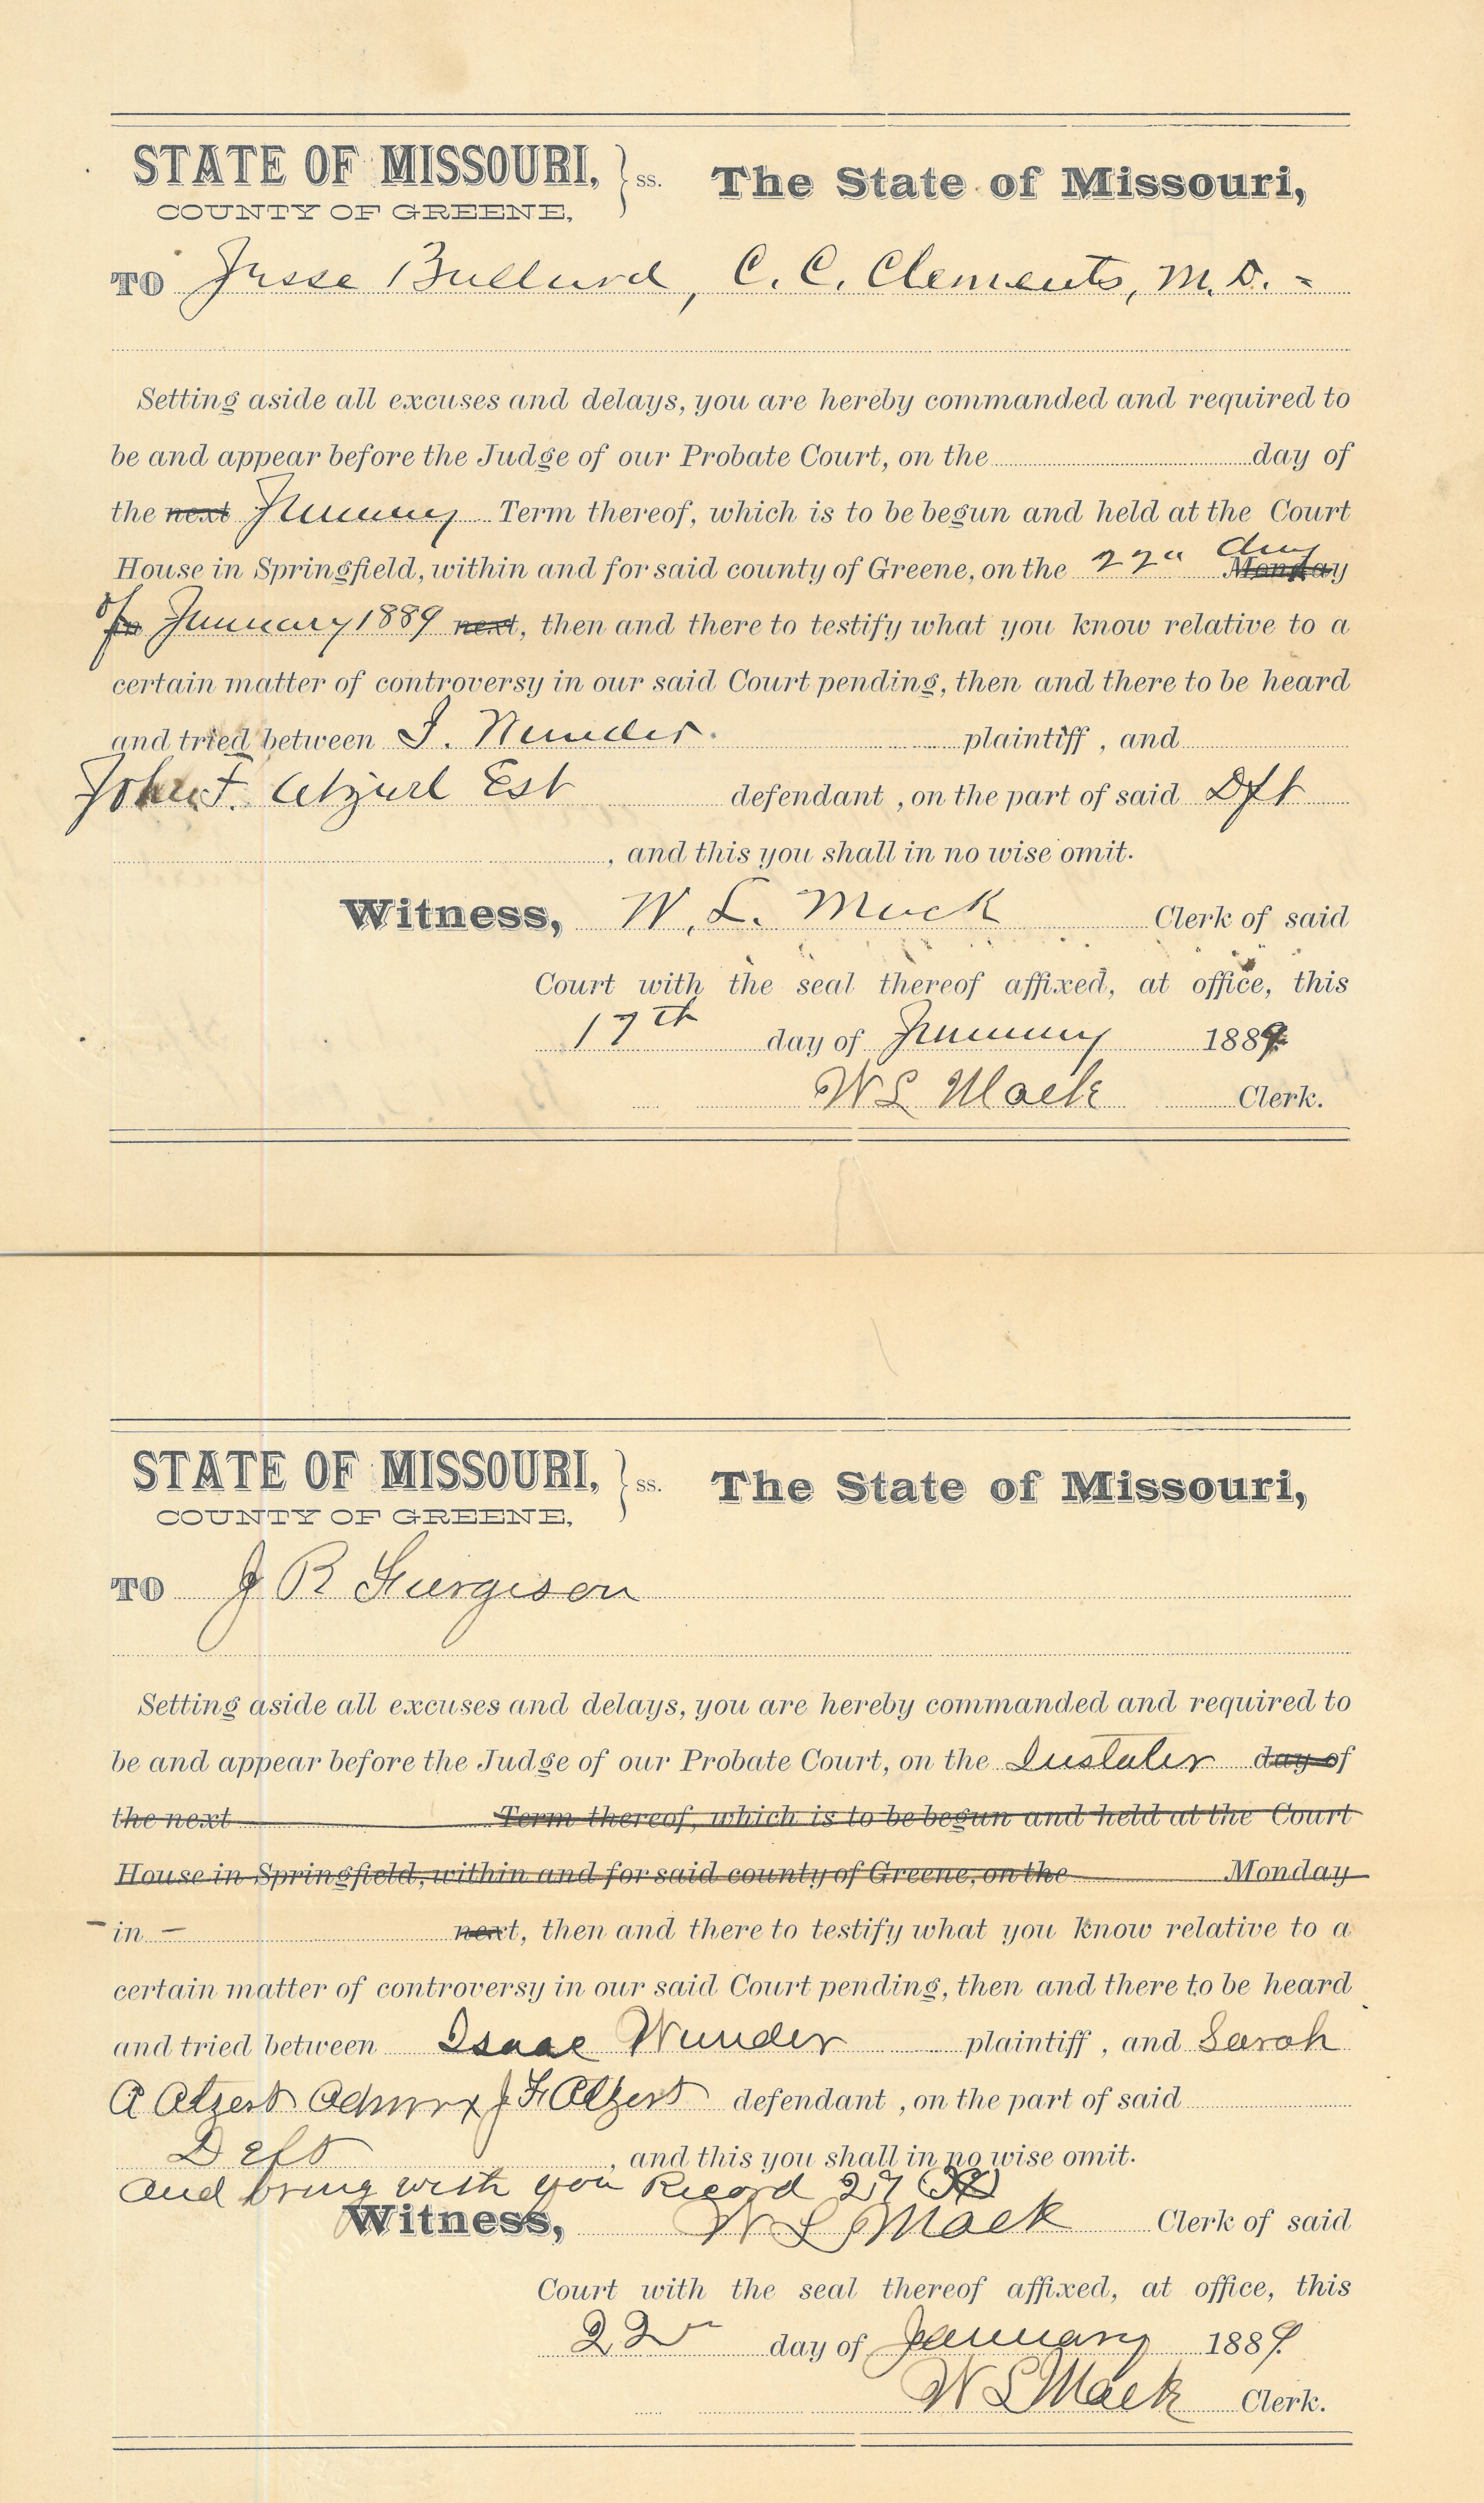 STATE OF MISSOURI, } ss. The State of Missouri,
COUNTY OF GREENE,
TO Jesse Bullard, C. C. Clements, M. D. =
Setting aside all excuses and delays, you are hereby commanded and required to
be and appear before the Judge of our Probate Court, on the day of
the next January Term thereof, which is to be begun and held at the Court
day
House in Springfield, within and for said county of Greene, on the 22d Monday
of
in January 1889 next, then and there to testify what you know relative to a
certain matter of controversy in our said Court pending, then and there to be heard
and tried between I. Wunder. plaintiff, and
John F. Atzerl Est defendant, on the part of said Dft
, and this you shall in no wise omit.
Witness, W. L. Mack Clerk of said
Court with the seal thereof affixed, at office, this
17th day of January 1889
W L Mack Clerk.
STATE OF MISSOURI, } ss. The State of Missouri,
COUNTY OF GREENE,
TO J R Furgison
Setting aside all excuses and delays, you are hereby commanded and required to
be and appear before the Judge of our Probate Court, on the Instater day of
the next Term thereof, which is to be begun and held at the Court
House in Springfield, within and for said county of Greene, on the Monday
- in - next, then and there to testify what you know relative to a
certain matter of controversy in our said Court pending, then and there to be heard
and tried between Isaac Wunder plaintiff, and Sarah
A Atzert Admrx J F Atzert defendant, on the part of said
Deft , and this you shall in no wise omit.
and bring with you Record 27
Witness, W L Mack Clerk of said
Court with the seal thereof affixed, at office, this
22 day of January 1889.
W L Mack Clerk.